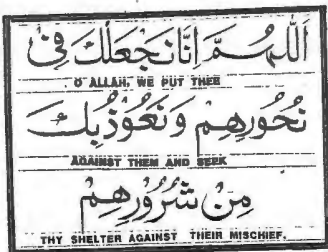 اَللّٰهُمَّ اِنَّا نَجْعَلُكَ فِيْ
O ALLAH, WE PUT THEE
نُحُوْرِهِمْ وَنَعُوْذُ بِكَ
AGAINST THEM AND SEEK
مِنْ شُرُوْرِهِمْ
THY SHELTER AGAINST THEIR MISCHIEF.